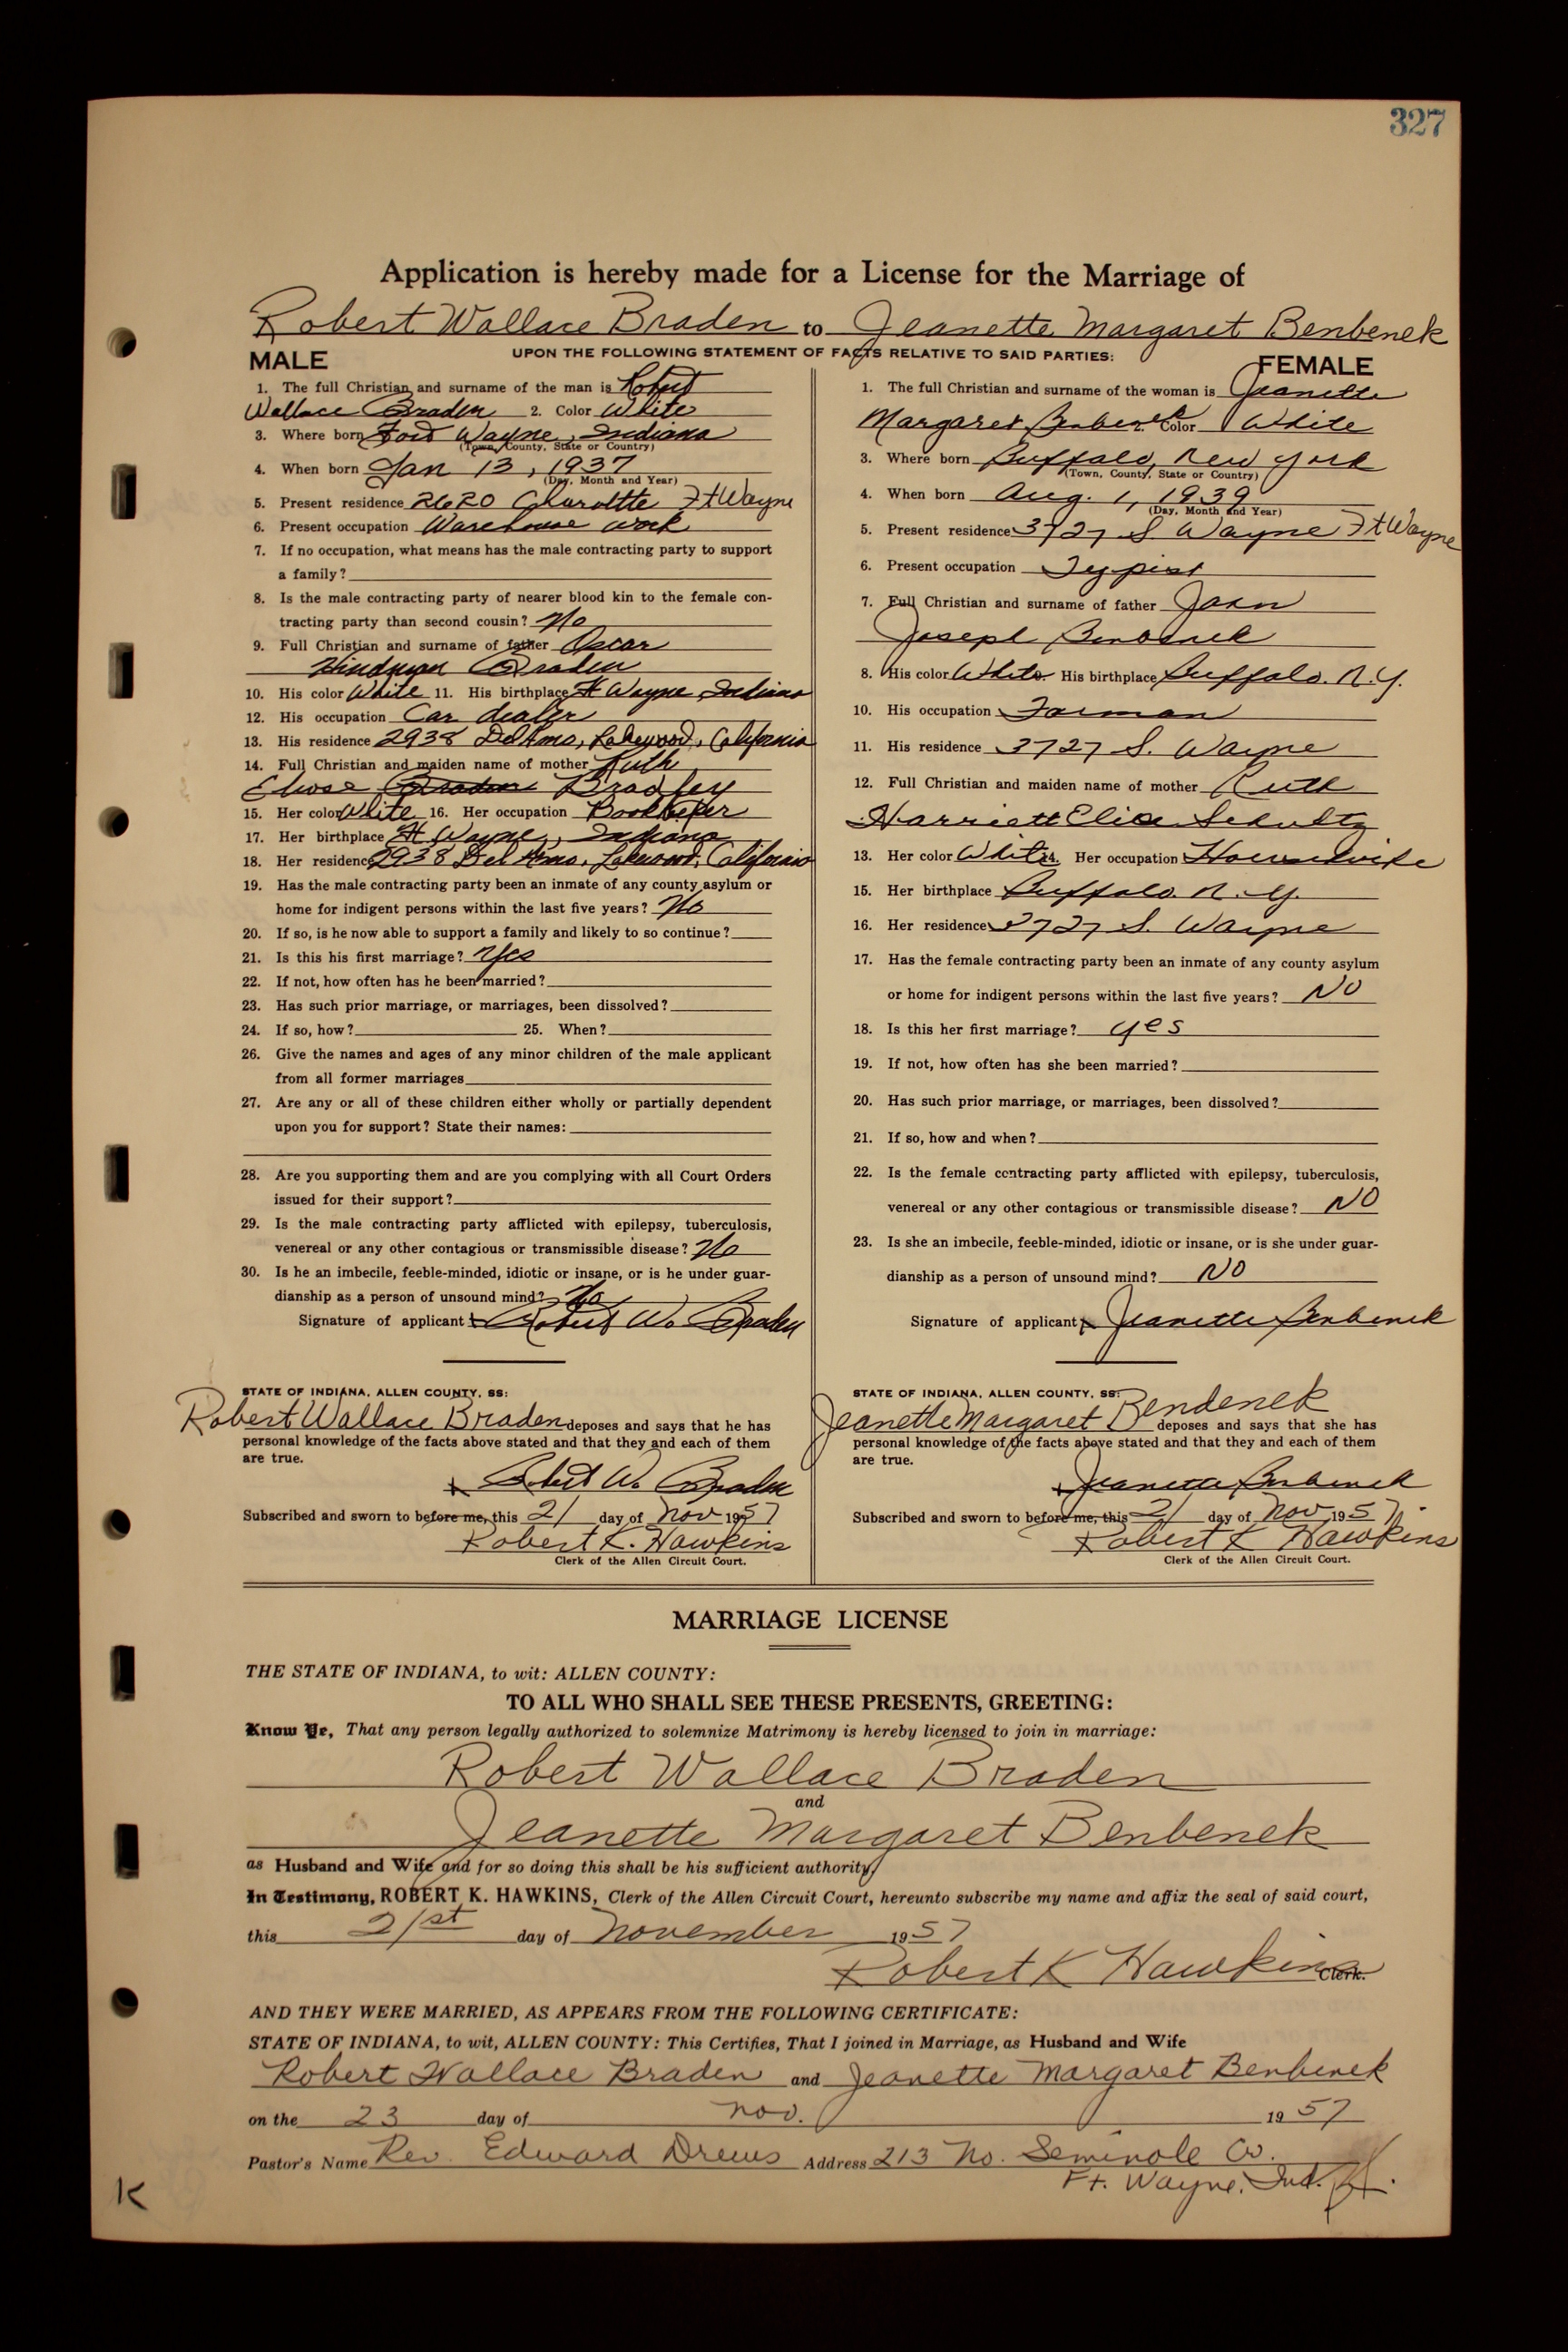 327
Application is hereby made for a License for the Marriage of
Robert Wallace Braden to Jeanette Margaret Benbenek
UPON THE FOLLOWING STATEMENT OF FACTS RELATIVE TO SAID PARTIES:
MALE
1. The full Christian and surname of the man is Robert
Wallace Braden 2. Color White
3. Where born Fort Wayne, Indiana
(Town, County, State or Country)
4. When born Jan 13, 1937
(Day, Month and Year)
5. Present residence 2620 Charoltte Ft Wayne
6. Present occupation Warehouse work
7. If no occupation, what means has the male contracting party to support
a family?
8. Is the male contracting party of nearer blood kin to the female con-
tracting party than second cousin? No
9. Full Christian and surname of father Oscar
Hindman Braden
10. His color White 11. His birthplace Ft Wayne, Indiana
12. His occupation Car dealer
13. His residence 2938 Del Amo, Lakewood, California
14. Full Christian and maiden name of mother Ruth
Braden Bradley
15. Her color White 16. Her occupation Bookkeper
17. Her birthplace Ft Wayne, Indiana
18. Her residence 2938 Del Amo, Lakewood, California
19. Has the male contracting party been an inmate of any county asylum or
home for indigent persons within the last five years? No
20. If so, is he now able to support a family and likely to so continue?
21. Is this his first marriage? Yes
22. If not, how often has he been married?
23. Has such prior marriage, or marriages, been dissolved?
24. If so, how? 25. When?
26. Give the names and ages of any minor children of the male applicant
from all former marriages
27. Are any or all of these children either wholly or partially dependent
upon you for support? State their names:
28. Are you supporting them and are you complying with all Court Orders
issued for their support?
29. Is the male contracting party afflicted with epilepsy, tuberculosis,
venereal or any other contagious or transmissible disease? No
30. Is he an imbecile, feeble-minded, idiotic or insane, or is he under guar-
dianship as a person of unsound mind? No
Signature of applicant x Robert W. Braden
STATE OF INDIANA, ALLEN COUNTY, SS:
Robert Wallace Braden deposes and says that he has
personal knowledge of the facts above stated and that they and each of them
are true.
x Robert W. Braden
Subscribed and sworn to before me, this 21 day of Nov 1957
Robert K. Hawkins
Clerk of the Allen Circuit Court.
FEMALE
1. The full Christian and surname of the woman is Jeanette
Margaret Benbenek 2. Color White
3. Where born Buffalo, New York
(Town, County, State or Country)
4. When born Aug. 1, 1939
(Day, Month and Year)
5. Present residence 3727 S Wayne Ft Wayne
6. Present occupation Typist
7. Full Christian and surname of father John
Joseph Benbenek
8. His color White. His birthplace Buffalo. N.Y.
10. His occupation Forman
11. His residence 3727 S. Wayne
12. Full Christian and maiden name of mother Ruth
Harriett Schultz
13. Her color White 14. Her occupation Housewife
15. Her birthplace Buffalo. N.Y.
16. Her residence 3727 S. Wayne
17. Has the female contracting party been an inmate of any county asylum
or home for indigent persons within the last five years? No
18. Is this her first marriage? yes
19. If not, how often has she been married?
20. Has such prior marriage, or marriages, been dissolved?
21. If so, how and when?
22. Is the female contracting party afflicted with epilepsy, tuberculosis,
venereal or any other contagious or transmissible disease? NO
23. Is she an imbecile, feeble-minded, idiotic or insane, or is she under guar-
dianship as a person of unsound mind? NO
Signature of applicant x Jeanette Benbenek
STATE OF INDIANA, ALLEN COUNTY, SS:
Jeanette Margaret Bendenek deposes and says that she has
personal knowledge of the facts above stated and that they and each of them
are true.
x Jeanette Benbenek
Subscribed and sworn to before me, this 21 day of Nov, 1957.
Robert K Hawkins
Clerk of the Allen Circuit Court.
MARRIAGE LICENSE
THE STATE OF INDIANA, to wit: ALLEN COUNTY:
TO ALL WHO SHALL SEE THESE PRESENTS, GREETING:
Know Ye, That any person legally authorized to solemnize Matrimony is hereby licensed to join in marriage:
Robert Wallace Braden
and
Jeanette Margaret Benbenek
as Husband and Wife and for so doing this shall be his sufficient authority
In Testimony, ROBERT K. HAWKINS, Clerk of the Allen Circuit Court, hereunto subscribe my name and affix the seal of said court,
this 21st day of November 1957
Robert K Hawkins Clerk.
AND THEY WERE MARRIED, AS APPEARS FROM THE FOLLOWING CERTIFICATE:
STATE OF INDIANA, to wit, ALLEN COUNTY: This Certifies, That I joined in Marriage, as Husband and Wife
Robert Wallace Braden and Jeanette Margaret Benbenek
on the 23 day of Nov. 1957
Pastor's Name Rev. Edward Drews Address 213 No. Seminole Cr.
Ft. Wayne, Ind.
K